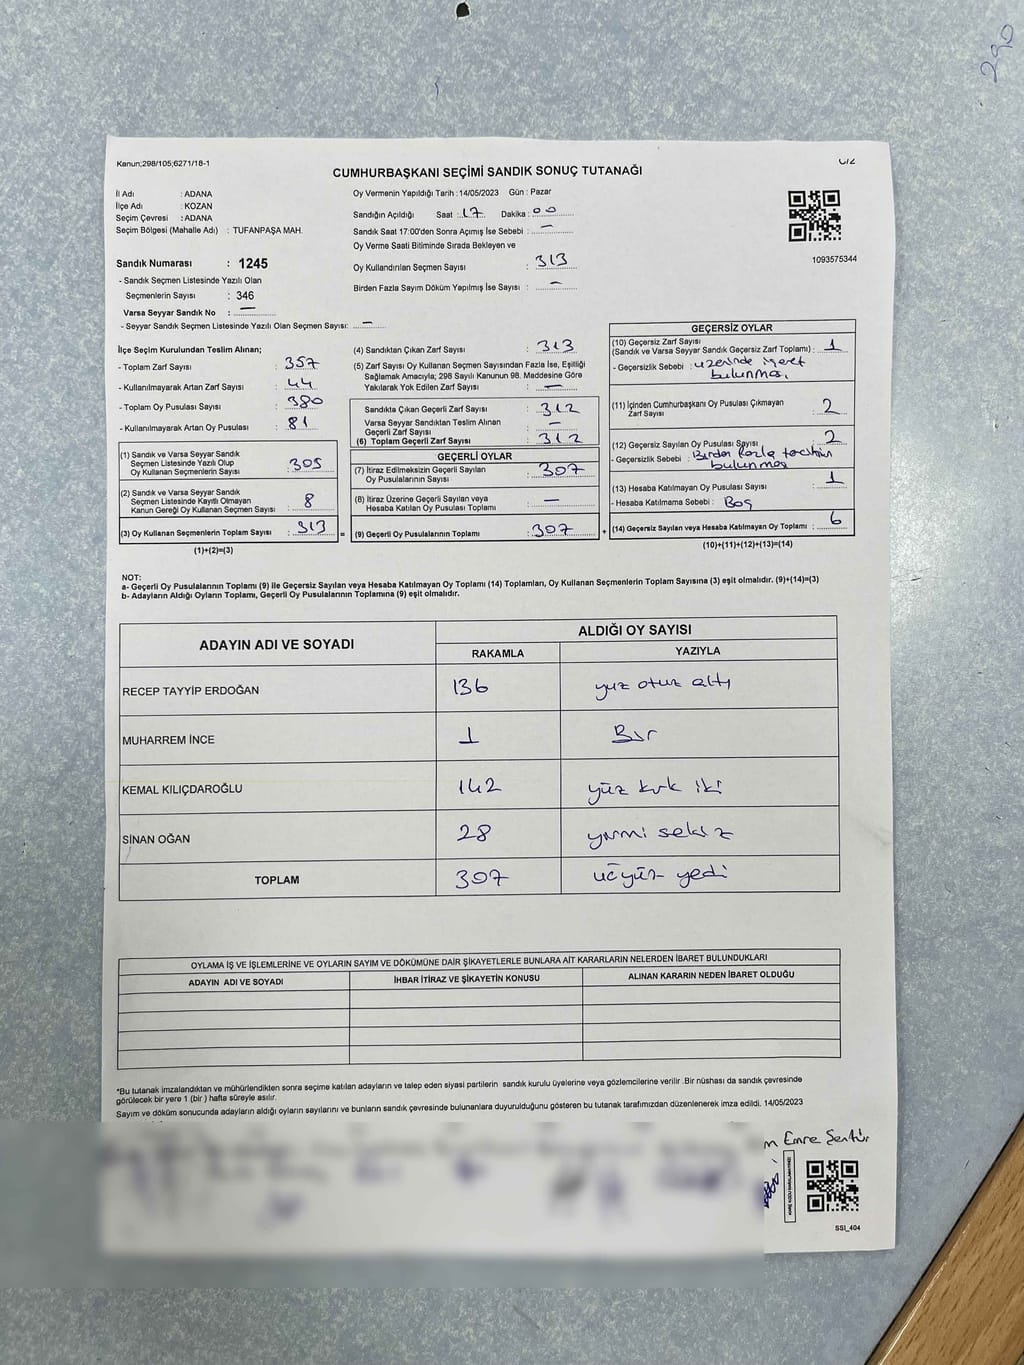 290
Kanun;298/105;6271/18-1
CUMHURBAŞKANI SEÇİMİ SANDIK SONUÇ TUTANAĞI
İl Adı : ADANA
İlçe Adı : KOZAN
Seçim Çevresi : ADANA
Seçim Bölgesi (Mahalle Adı) : TUFANPAŞA MAH.
Oy Vermenin Yapıldığı Tarih : 14/05/2023 Gün : Pazar
Sandığın Açıldığı Saat : 17 Dakika : 00
Sandık Saat 17:00'den Sonra Açımış İse Sebebi : —
Oy Verme Saati Bitiminde Sırada Bekleyen ve
Oy Kullandırılan Seçmen Sayısı : 313
Birden Fazla Sayım Döküm Yapılmış İse Sayısı : —
1093575344
Sandık Numarası : 1245
- Sandık Seçmen Listesinde Yazılı Olan
Seçmenlerin Sayısı : 346
Varsa Seyyar Sandık No : —
- Seyyar Sandık Seçmen Listesinde Yazılı Olan Seçmen Sayısı: —
İlçe Seçim Kurulundan Teslim Alınan;
- Toplam Zarf Sayısı : 357
- Kullanılmayarak Artan Zarf Sayısı : 44
- Toplam Oy Pusulası Sayısı : 380
- Kullanılmayarak Artan Oy Pusulası : 81
(1) Sandık ve Varsa Seyyar Sandık
Seçmen Listesinde Yazılı Olup
Oy Kullanan Seçmenlerin Sayısı : 305
(2) Sandık ve Varsa Seyyar Sandık
Seçmen Listesinde Kayıtlı Olmayan
Kanun Gereği Oy Kullanan Seçmen Sayısı : 8
(3) Oy Kullanan Seçmenlerin Toplam Sayısı : 313 =
(1)+(2)=(3)
(4) Sandıktan Çıkan Zarf Sayısı : 313
(5) Zarf Sayısı Oy Kullanan Seçmen Sayısından Fazla İse, Eşitliği
Sağlamak Amacıyla; 298 Sayılı Kanunun 98. Maddesine Göre
Yakılarak Yok Edilen Zarf Sayısı : —
Sandıkta Çıkan Geçerli Zarf Sayısı : 312
Varsa Seyyar Sandıktan Teslim Alınan
Geçerli Zarf Sayısı : —
(6) Toplam Geçerli Zarf Sayısı : 312
GEÇERLİ OYLAR
(7) İtiraz Edilmeksizin Geçerli Sayılan
Oy Pusulalarının Sayısı : 307
(8) İtiraz Üzerine Geçerli Sayılan veya
Hesaba Katılan Oy Pusulası Toplamı : —
(9) Geçerli Oy Pusulalarının Toplamı : 307 +
GEÇERSİZ OYLAR
(10) Geçersiz Zarf Sayısı
(Sandık ve Varsa Seyyar Sandık Geçersiz Zarf Toplamı) : 1
- Geçersizlik Sebebi : üzerinde işaret
bulunması
(11) İçinden Cumhurbaşkanı Oy Pusulası Çıkmayan
Zarf Sayısı : 2
(12) Geçersiz Sayılan Oy Pusulası Sayısı : 2
- Geçersizlik Sebebi : Birden fazla tercihin
bulunması
(13) Hesaba Katılmayan Oy Pusulası Sayısı : 1
- Hesaba Katılmama Sebebi : Boş
(14) Geçersiz Sayılan veya Hesaba Katılmayan Oy Toplamı : 6
(10)+(11)+(12)+(13)=(14)
NOT:
a- Geçerli Oy Pusulalarının Toplamı (9) ile Geçersiz Sayılan veya Hesaba Katılmayan Oy Toplamı (14) Toplamları, Oy Kullanan Seçmenlerin Toplam Sayısına (3) eşit olmalıdır. (9)+(14)=(3)
b- Adayların Aldığı Oyların Toplamı, Geçerli Oy Pusulalarının Toplamına (9) eşit olmalıdır.
ADAYIN ADI VE SOYADI
ALDIĞI OY SAYISI
RAKAMLA YAZIYLA
RECEP TAYYİP ERDOĞAN 136 yüz otuz altı
MUHARREM İNCE 1 Bir
KEMAL KILIÇDAROĞLU 142 yüz kırk iki
SİNAN OĞAN 28 yirmi sekiz
TOPLAM 307 üçyüz yedi
OYLAMA İŞ VE İŞLEMLERİNE VE OYLARIN SAYIM VE DÖKÜMÜNE DAİR ŞİKAYETLERLE BUNLARA AİT KARARLARIN NELERDEN İBARET BULUNDUKLARI
ADAYIN ADI VE SOYADI İHBAR İTİRAZ VE ŞİKAYETİN KONUSU ALINAN KARARIN NEDEN İBARET OLDUĞU
*Bu tutanak imzalandıktan ve mühürlendikten sonra seçime katılan adayların ve talep eden siyasi partilerin sandık kurulu üyelerine veya gözlemcilerine verilir .Bir nüshası da sandık çevresinde
görülecek bir yere 1 (bir ) hafta süreyle asılır.
Sayım ve döküm sonucunda adayların aldığı oyların sayılarını ve bunların sandık çevresinde bulunanlara duyurulduğunu gösteren bu tutanak tarafımızdan düzenlenerek imza edildi. 14/05/2023
Emre Şentür
SSI_404